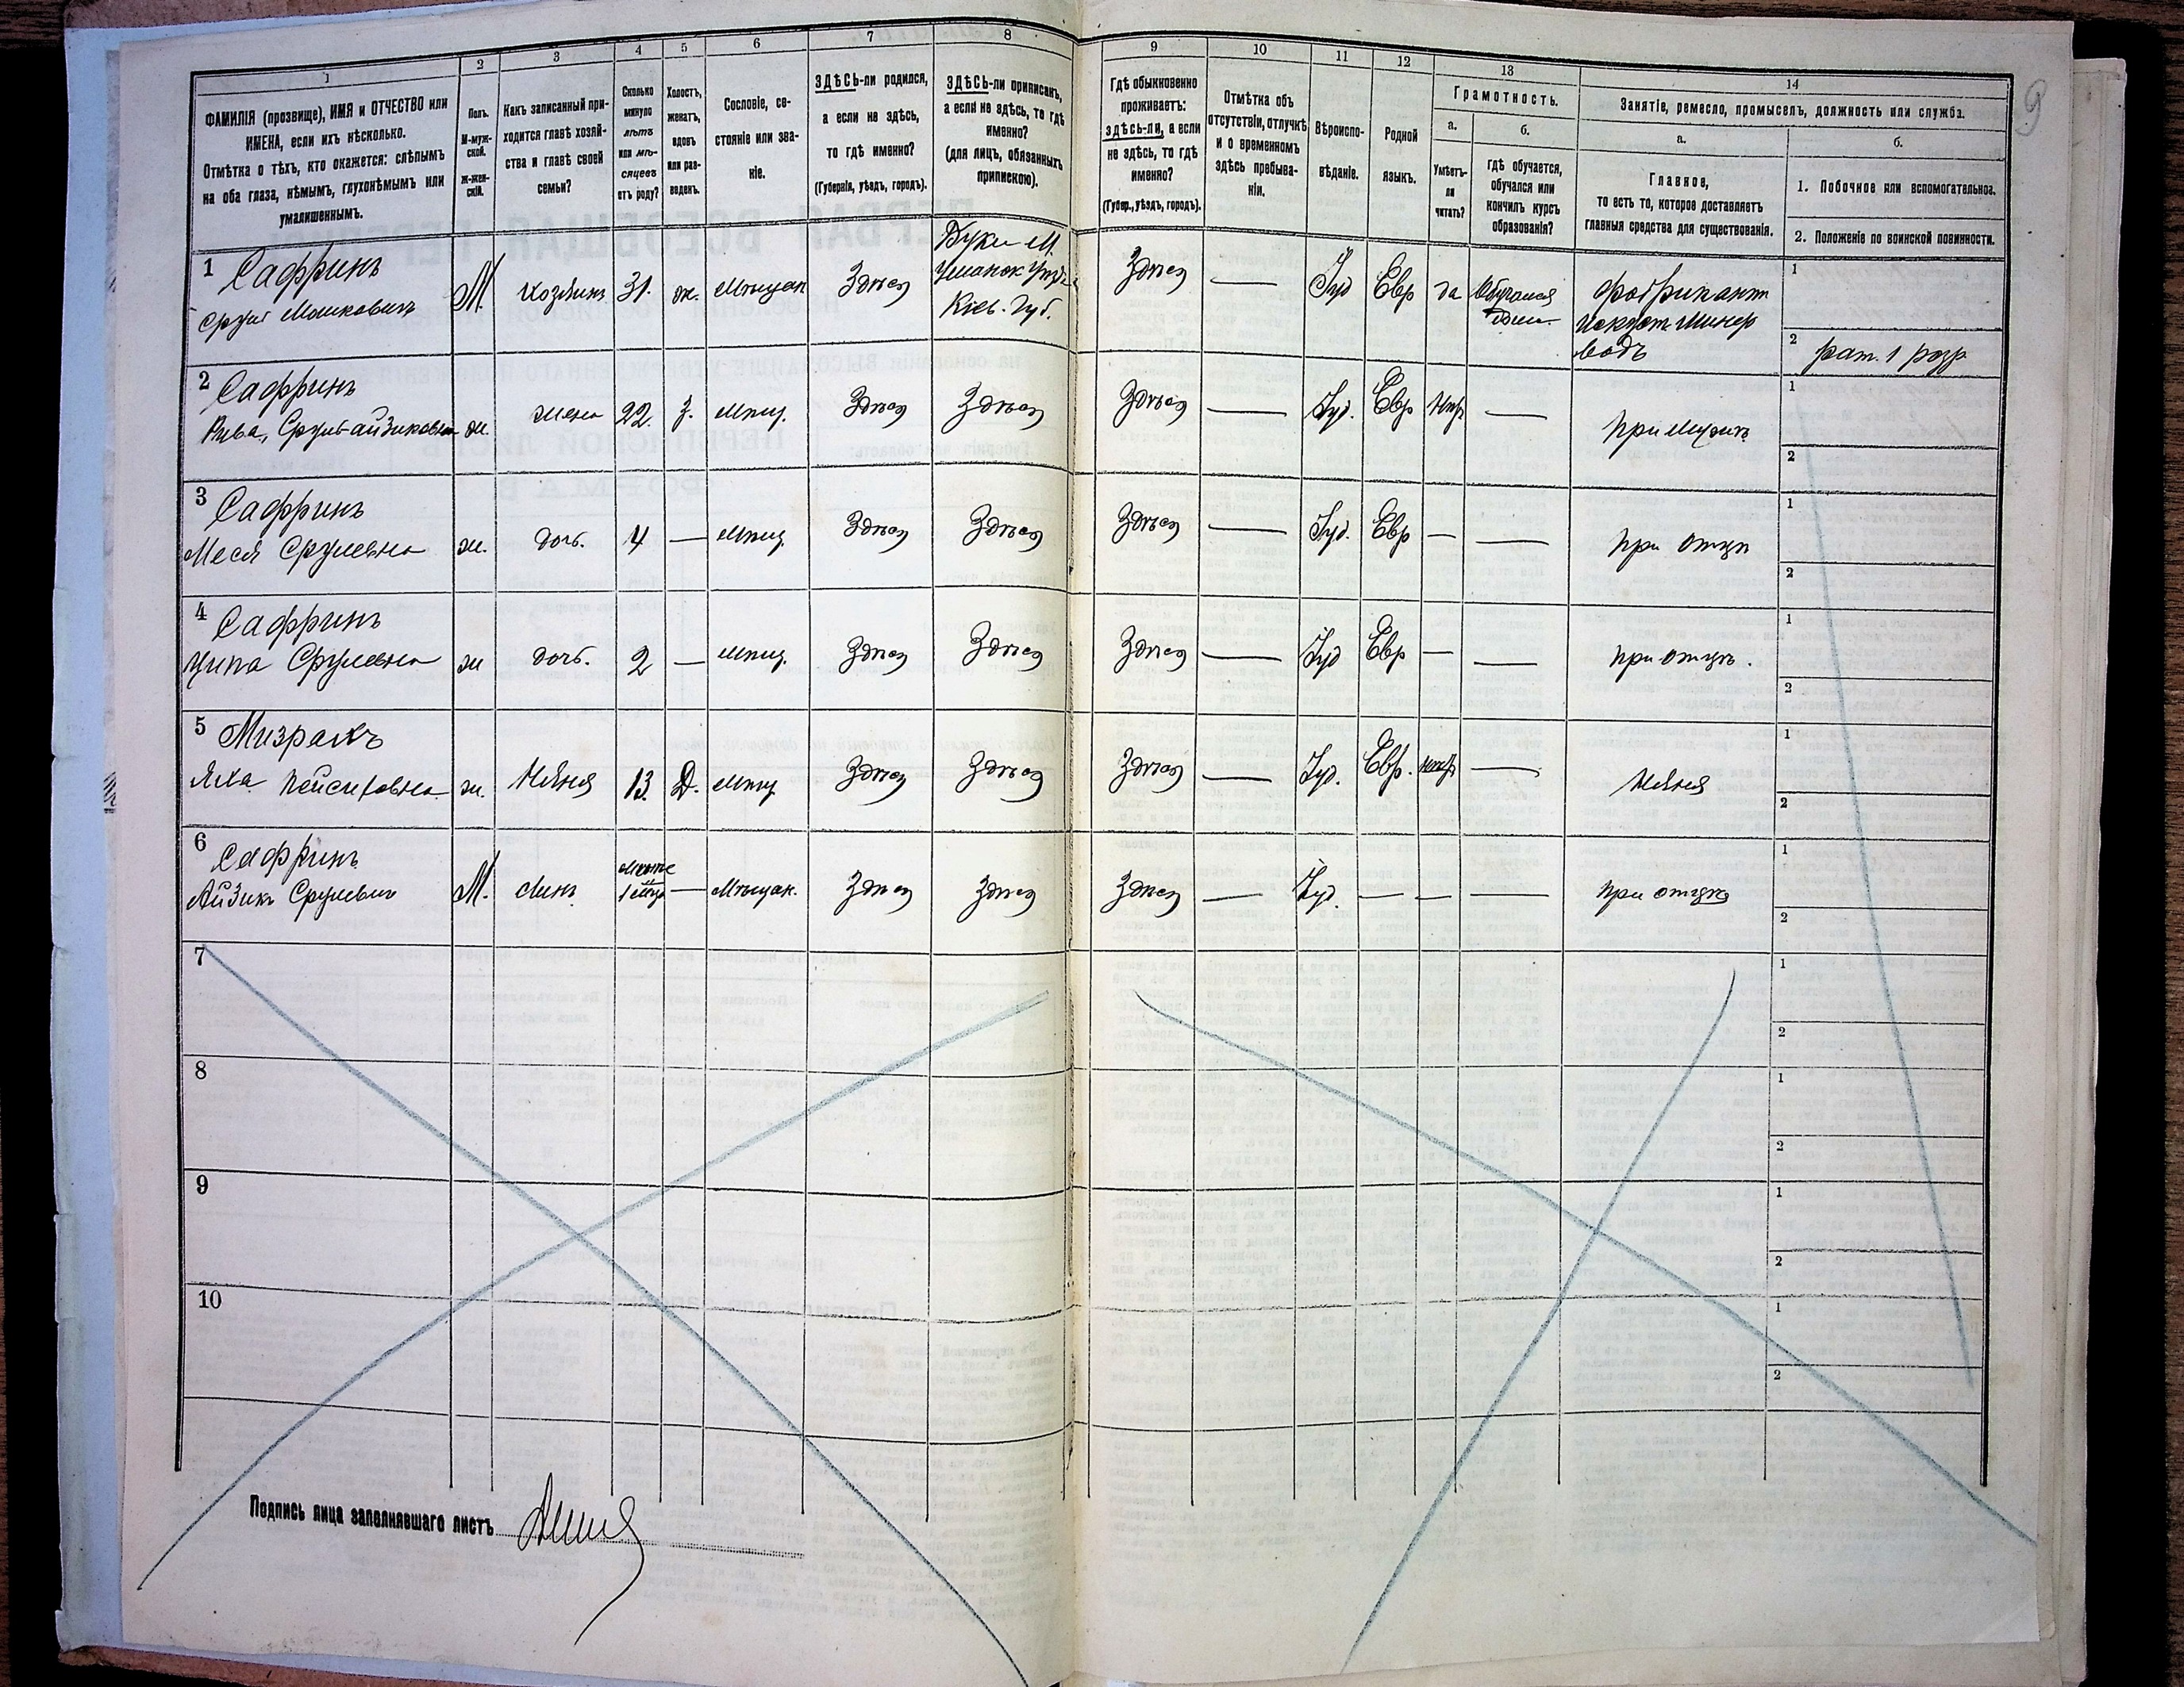 9
1
2
3
4
5
6
7
8
9
10
11
12
13
14
ФАМИЛІЯ (прозвище), ИМЯ и ОТЧЕСТВО или
ИМЕНА, если ихъ нѣсколько.
Отмѣтка о тѣхъ, кто окажется: слѣпымъ
на оба глаза, нѣмымъ, глухонѣмымъ или
умалишеннымъ.
Полъ.
М-муж-
ской.
Ж-жен-
скій.
Какъ записанный при-
ходится главѣ хозяй-
ства и главѣ своей
семьи?
Сколько
минуло
лѣтъ
или мѣ-
сяцевъ
отъ роду?
Холостъ,
женатъ,
вдовъ
или раз-
веденъ.
Сословіе, со-
стояніе или зва-
ніе.
ЗДѢСЬ-ли родился,
а если не здѣсь,
то гдѣ именно?
(Губернія, уѣздъ, городъ).
ЗДѢСЬ-ли приписанъ,
а если не здѣсь, то гдѣ
именно?
(для лицъ, обязанныхъ
припискою).
Гдѣ обыкновенно
проживаетъ:
здѣсь-ли, а если
не здѣсь, то гдѣ
именно?
(Губер., уѣздъ, городъ).
Отмѣтка объ
отсутствіи, отлучкѣ
и о временномъ
здѣсь пребыва-
ніи.
Вѣроиспо-
вѣданіе.
Родной
языкъ.
Грамотность.
а.
б.
Умѣетъ-
ли
читать?
гдѣ обучается,
обучался или
кончилъ курсъ
образованія?
Занятіе, ремесло, промыселъ, должность или служба.
а.
б.
Главное,
то есть то, которое доставляетъ
главныя средства для существованія.
1. Побочное или вспомогательное.
2. Положеніе по воинской повинности.
1 Саффринъ
Срулъ Мошковичъ
М
хозяинъ
31.
ж.
Мѣщан
Здѣсь
Буки М.
Уманск Уѣз.
Кіев. Губ.
Здѣсь
—
Іуд
Евр
да
Обучался
дом.
Фабрикант
искуст Минер
водъ
1
2 рат. 1 разр
2 Саффринъ
Рива, Срулъ-айзиковна
ж.
жена
22.
З.
Мѣщ.
Здѣсь
Здѣсь
Здѣсь
—
Іуд.
Евр
нѣт
—
При мужѣ
1
2
3 Саффринъ
Меся Срулевна
ж.
дочь.
4
—
Мѣщ.
Здѣсь
Здѣсь
Здѣсь
—
Іуд.
Евр
—
—
При отцѣ
1
2
4 Саффринъ
Ципа Срулевна
ж
дочь.
2
—
Мѣщ.
Здѣсь
Здѣсь
Здѣсь
—
Іуд
Евр
—
—
при отцѣ.
1
2
5 Мизрахъ
Яха Пейсиховна
ж.
Няня
13.
Д.
Мѣщ
Здѣсь
Здѣсь
Здѣсь
—
Іуд.
Евр.
нѣт
—
Няня
1
2
6 Саффринъ.
Айзикъ Срулевич
М.
сынъ
1
—
Мѣщан.
Здѣсь
Здѣсь
Здѣсь
—
Іуд.
—
—
—
при отцѣ
1
2
7
1
2
8
1
2
9
1
2
10
1
2
Подпись лица заполнявшаго листъ